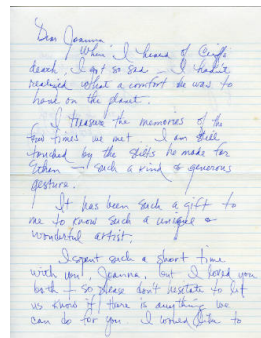 Dear Joanna
When I heard of
death, I got so sad — I hadn't
realized what a comfort he was to
have on the planet.
I treasure the memories of the
few times we met — I am still
touched by the he made for
— such a kind & generous
gesture.
It has been such a gift to
me to know such a unique &
wonderful artist.
I spent such a short time
with you, Joanna, but I loved you
both & so please don't hesitate to let
us know if there is anything we
can do for you. I would like to